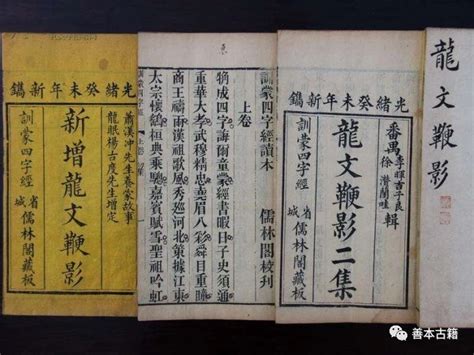 龍文鞭影
光緒癸未年新鐫
番禺李暉吉子良
徐
輯
龍文鞭影二集
訓蒙四字經
省城儒林閣藏板
訓蒙四字經讀本
上卷 儒林閣校刊
粗成四字誨爾童蒙經書暇日子史須通
重華大孝武穆精忠堯眉八彩舜目重瞳
商王禱雨漢祖歌風秀巡河北策據江東
太宗懷鷂桓典乘驄嘉賓賦雪聖祖吟虹
光緒癸未年新鐫
蕭漢冲先生養家故事
龍眠楊古度先生增定
新增龍文鞭影
訓蒙四字經
省城儒林閣藏板
善本古籍